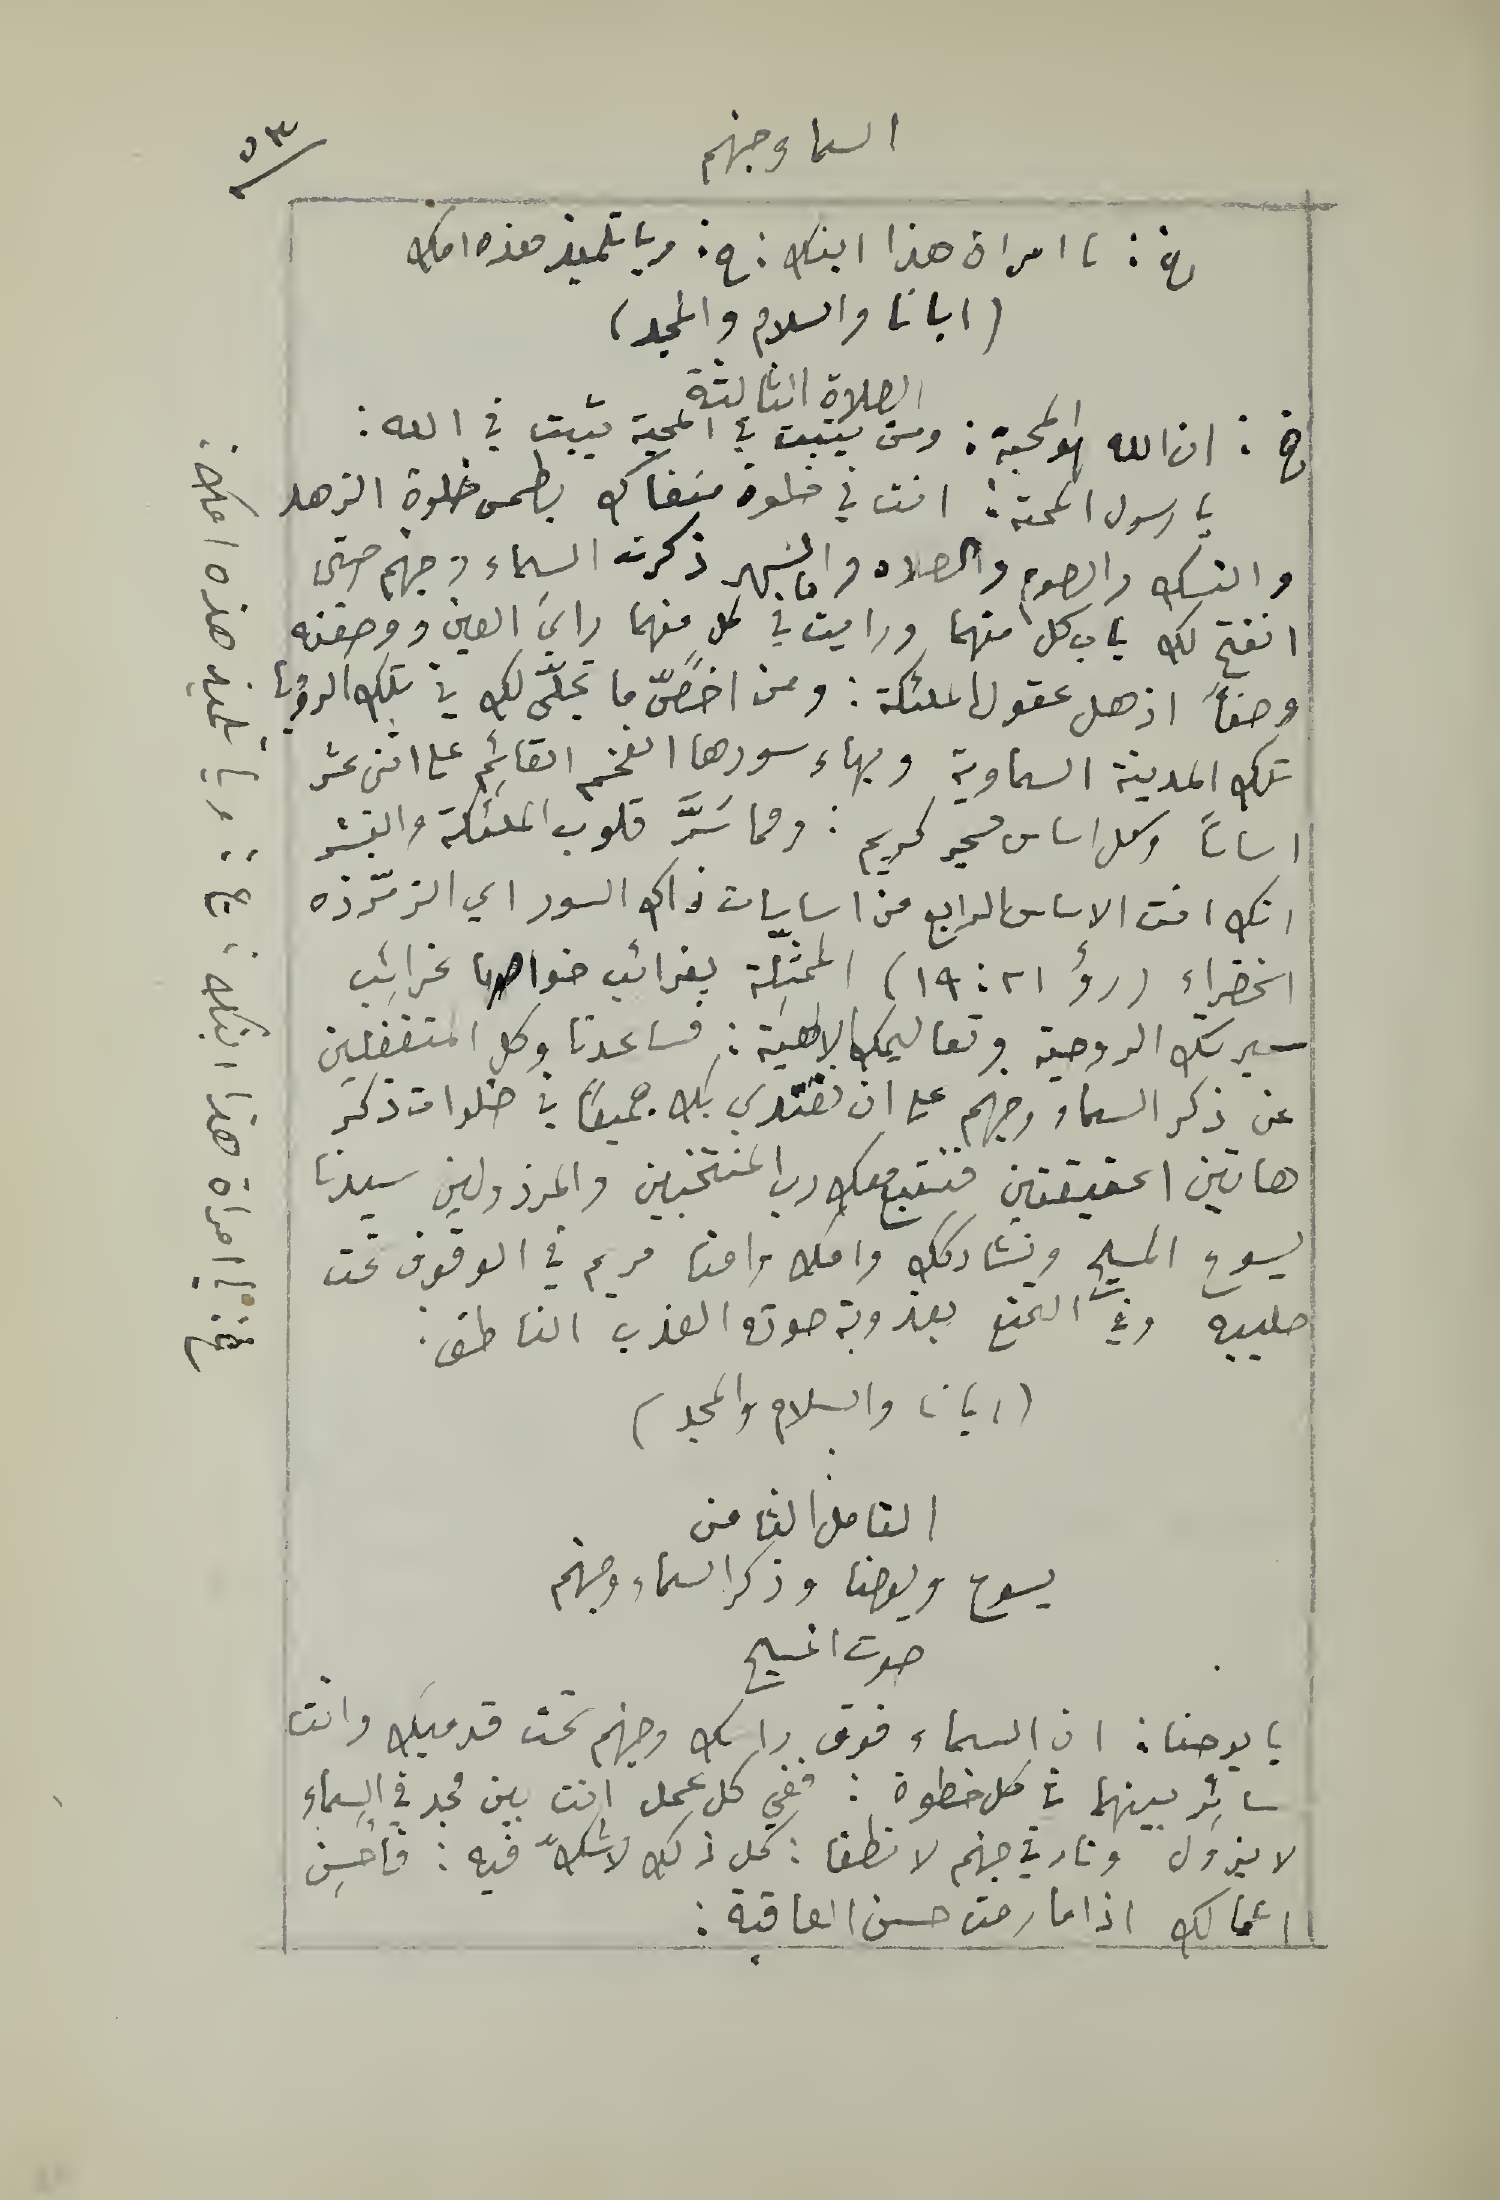 السما وجهنم
٥٣
خ: يا امراة هذا ابنك: ع: ويا تلميذ هذه امك
(ابانا والسلام والمجد)
الصلاة الثالثة
خ: ان الله لهو المحبة: ومن يثبت في المحبة يثبت في الله:
يا رسول المحبة: انت في خلوة منفاك بطمس خلوة الزهد
والنسك والصوم والصلاه والسهر ذكرت السماء وجهنم حتى
انفتح لك باب كل منهما ورايت في كل منهما رايَ العين ووصفته
وصفاً اذهل عقول الملئكة: ومن اخصّ ما تجلّى لك في تلك الرؤيا
تلك المدينة السماوية وبهاء سورها الفخم القائم على اثنى عشر
اساساً وكل اساس حجر كريم: ومما سَرَّ قلوب الملئكة والبشر
انك انت الاساس الرابع من اساسات ذاك السور اي الزمّرذه
الخضراء (رؤ ٢١: ١٩) الممثِّلة بغرائب خواصها غرائب
سيرتك الروحية وتعاليمك الالهيَة: فساعدنا وكل المتغفلين
عن ذكر السماء وجهنم على ان نقتدي بك جميعاً في خلوات ذكر
هاتين الحقيقتين فنتبع معك رب المنتخبين والمرذولين سيدنا
يسوع المسيح ونشاركك وامك وامنا مريم في الوقوف تحت
صليبه وفي التمتع بعذوبة صوته العذب الناطق:
(ابانا والسلام والمجد)
التامل الثامن
يسوع ويوحنا وذكر السماء وجهنم
صوت المسيح
يا يوحنا: ان السماء فوق راسك وجهنم تحت قدميك وانت
سائر بينهما في كل خطوة: ففي كل عمل انت بين مجد في السماء
لا يزول ونار في جهنم لا تطفا: كل ذلك لا شكّ فيه: فاحسِن
اعمالك اذا ما رمت حسن العاقبة:
خ: يا امراة هذا ابنك: ع: ويا تلميذ هذه امك: